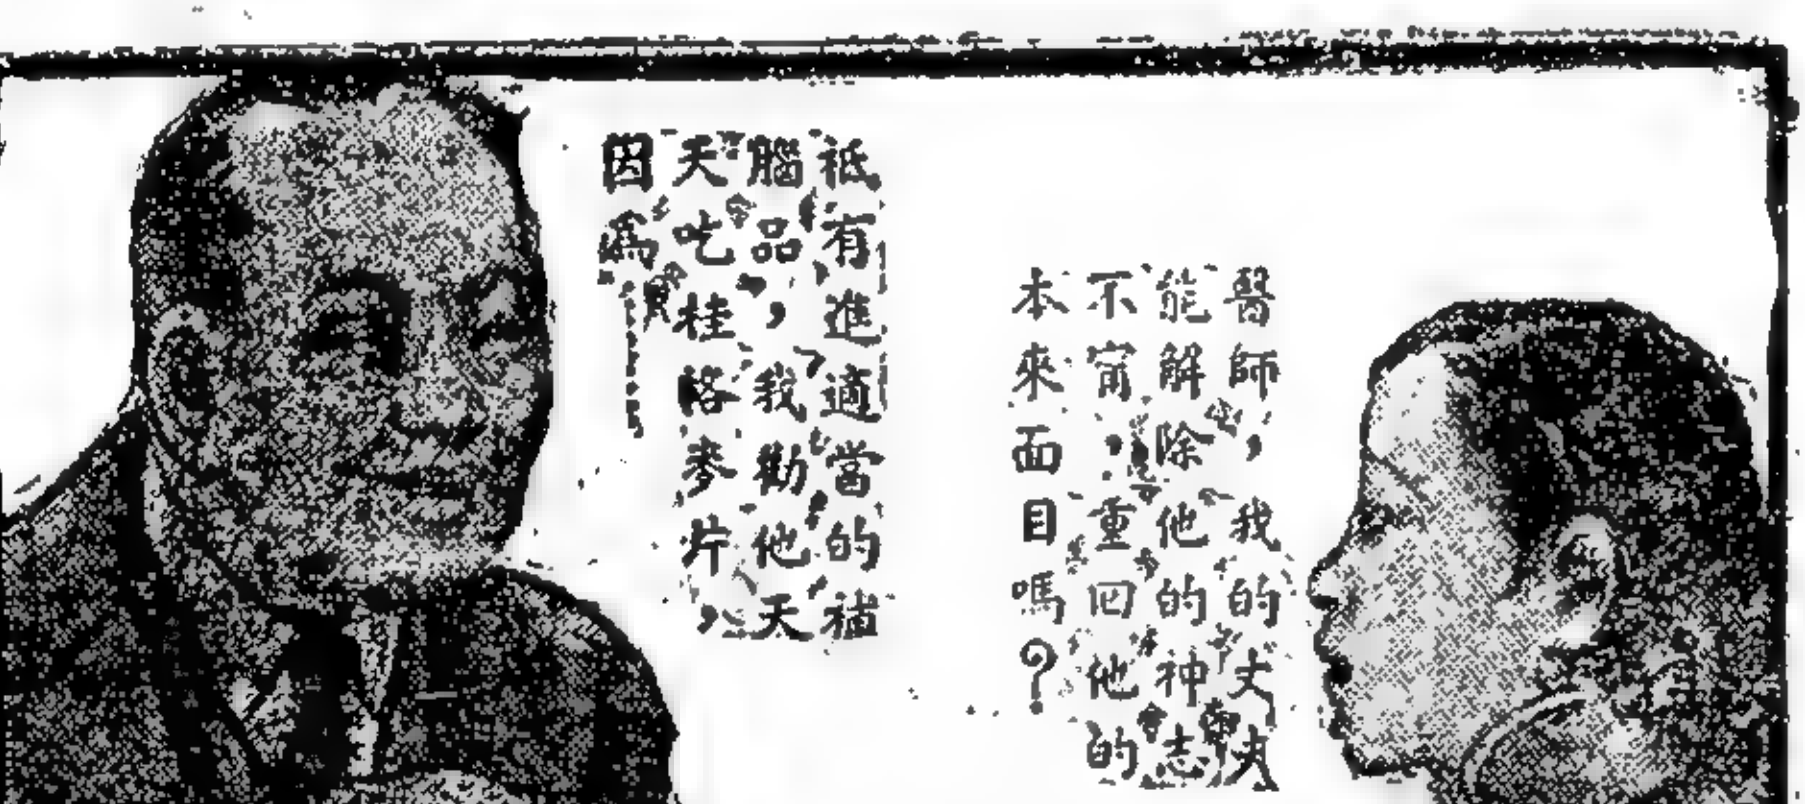 醫師，我的丈夫
能解除他的神志
不甯，重回他的
本來面目嗎？
祗有進適當的補
腦品，我勸他天
天吃桂洛麥片，
因爲……